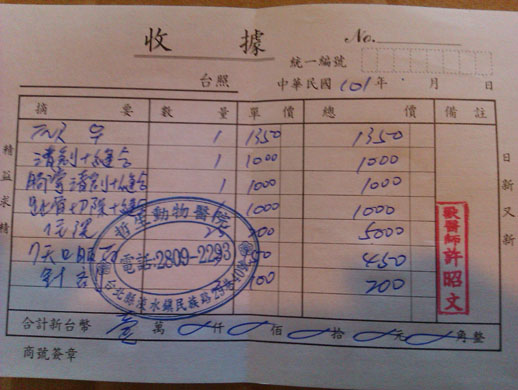 收 據
No.
統一編號
台照 中華民國 101 年 月 日
摘 要 數 量 單 價 總 價 備 註
1 1350 1350
清創+縫合 1 1000 1000
胸掌清創+縫合 1 1000 1000
切除+縫合 1 1000 1000
住院 5000
7天口服藥 450
200
合計新台幣 壹 萬 仟 佰 拾 元 角整
商號簽章
精益求精
日新又新
獸醫師 許昭文
動物醫院
電話:2809-2293
台北縣淡水鎮民族路